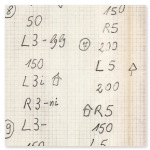 8
50
L3-gg
150
L3i ⇧
R3-ni
9 L3-
150
R5
9 200
L5 ⇧
200
⇧R5
150
L5